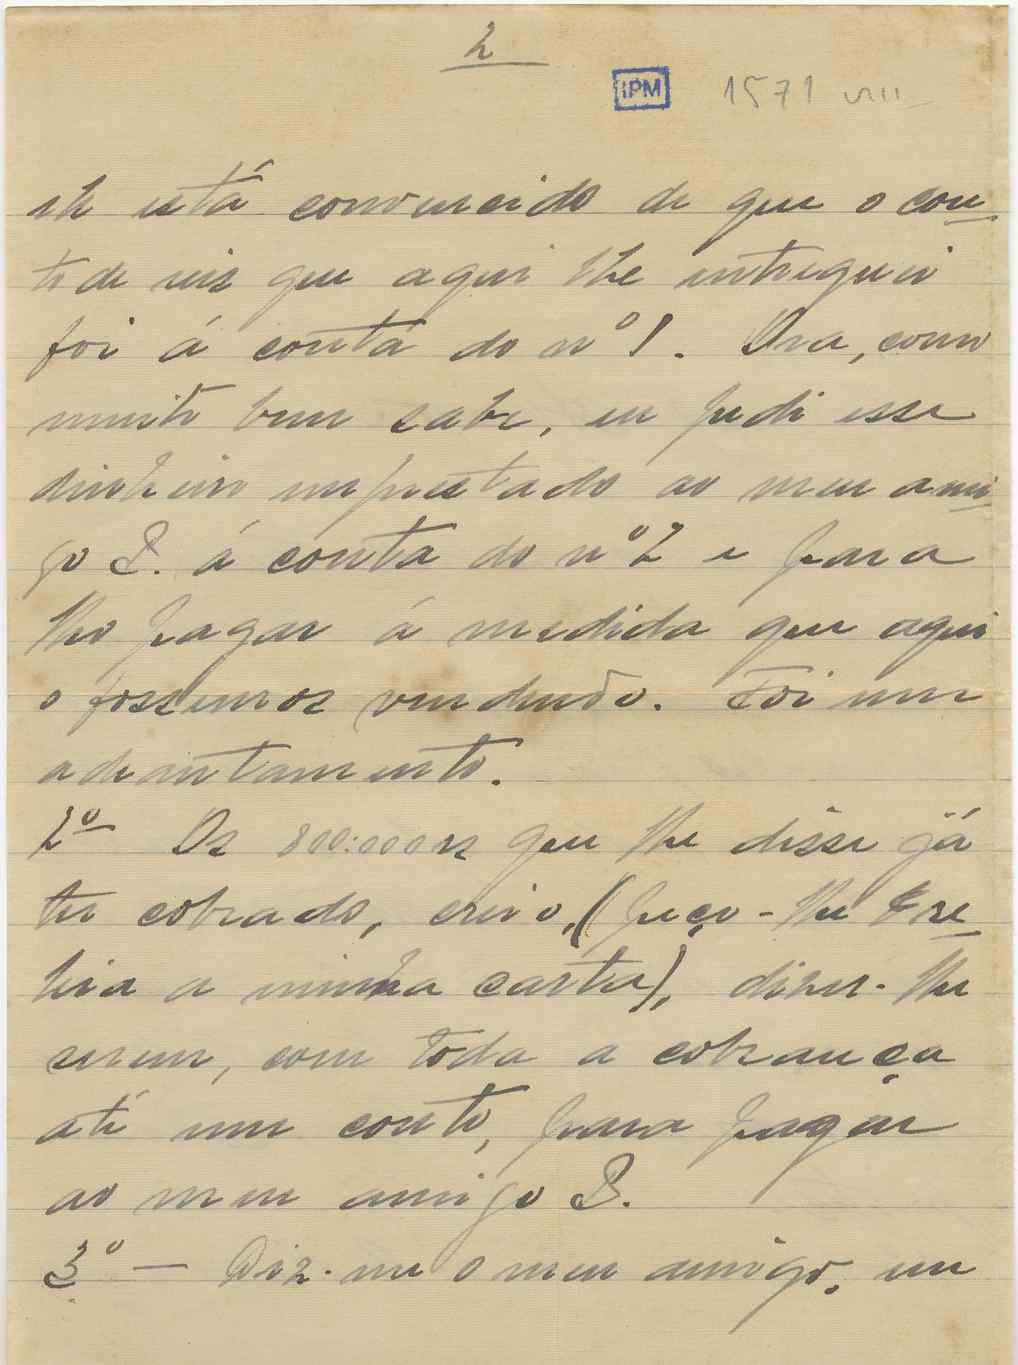 2
IPM 1571 VIII
ele está convencido de que o con-
to de reis que aqui lhe entreguei
foi á conta do nº 1. Ora, como
muito bem sabe, eu pedi esse
dinheiro emprestado ao meu ami-
go B. á conta do nº 2 e para
lho pagar á medida que aqui
o fossemos vendendo. Foi um
adeantamento.
2º Os 800:000 rs que lhe disse já
ter cobrado, creio, (peço-lhe re-
leia a minha carta), dizer-lhe
serem, com toda a cobrança
até um conto, para pagar
ao meu amigo B.
3º — Diz-me o meu amigo, em